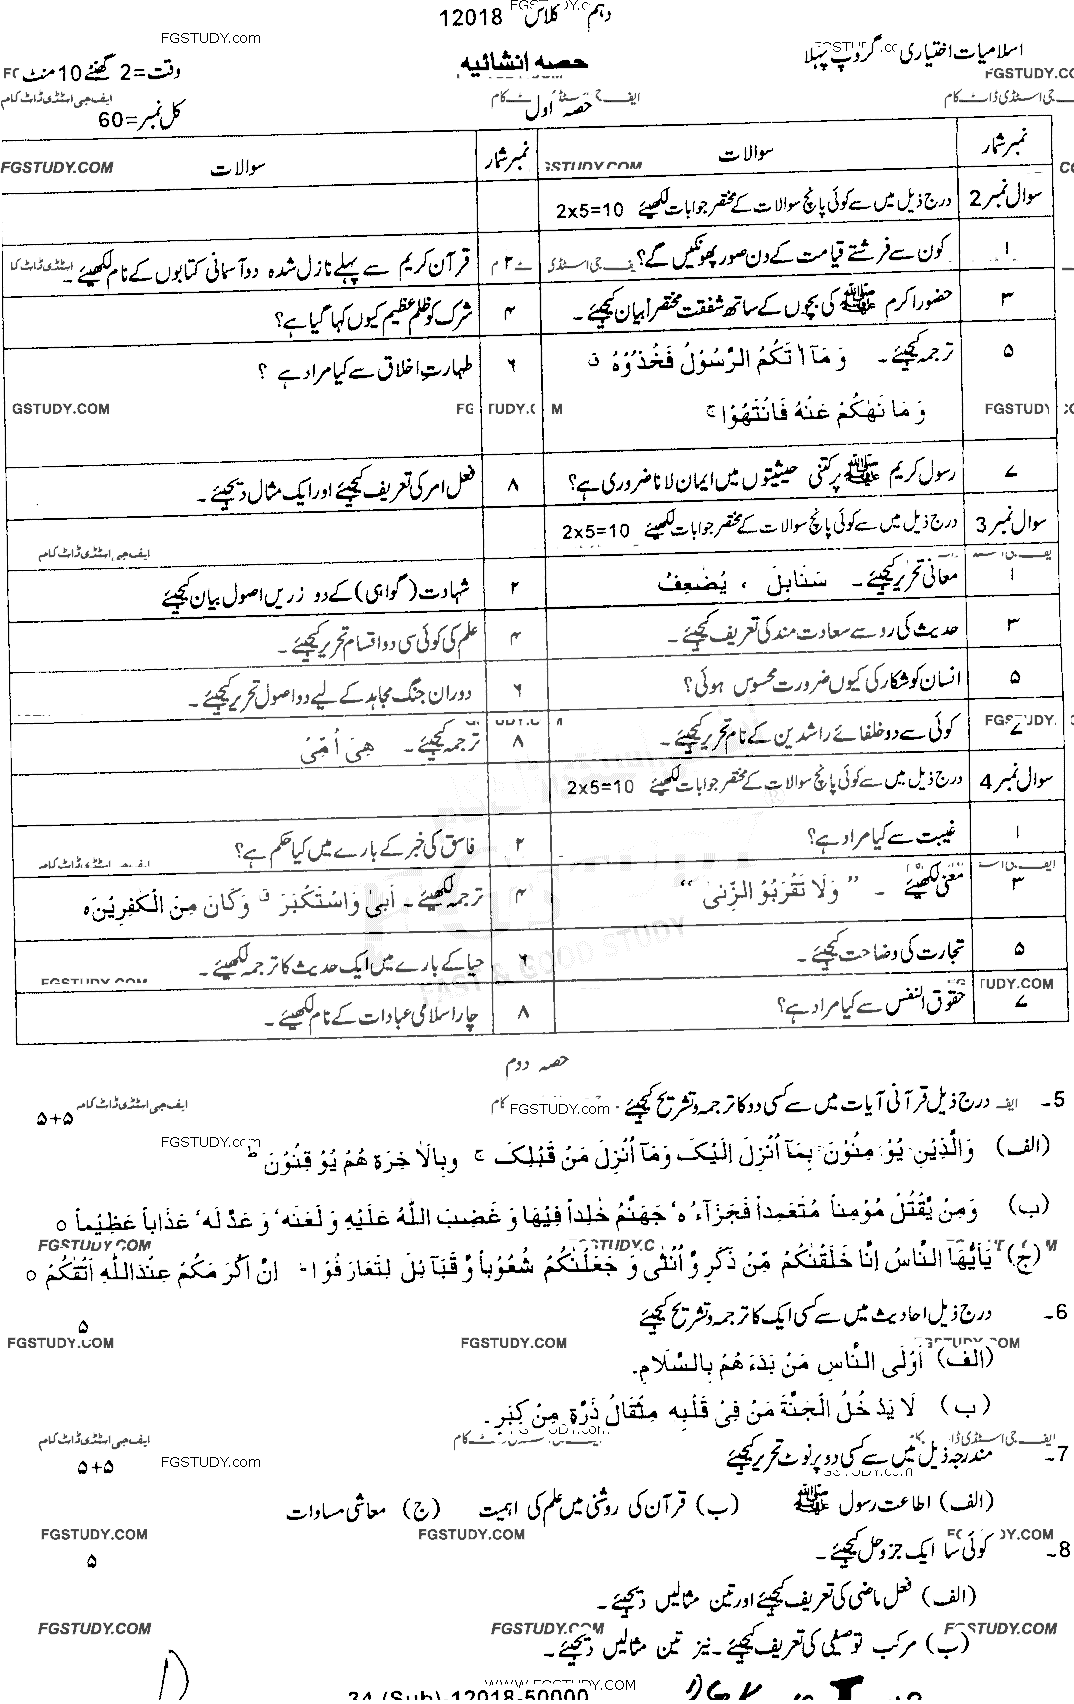 دہم کلاس 12018
FGSTUDY.com
اسلامیات اختیاری گروپ پہلا
حصہ انشائیہ
وقت=2 گھنٹے 10 منٹ
FGSTUDY.CO
ایف جی اسٹڈی ڈاٹ کام
حصہ اول
کل نمبر=60
نمبر شمار سوالات نمبر شمار سوالات
FGSTUDY.COM
سوال نمبر 2 درج ذیل میں سے کوئی پانچ سوالات کے مختصر جوابات لکھیئے 2x5=10
۱ کون سے فرشتے قیامت کے دن صور پھونکیں گے؟ ۲ قرآن کریم سے پہلے نازل شدہ دو آسمانی کتابوں کے نام لکھیئے
۳ حضور اکرم ﷺ کی بچوں کے ساتھ شفقت مختصراً بیان کیجئے۔ ۴ شرک کو ظلم عظیم کیوں کہا گیا ہے؟
۵ ترجمہ کیجئے۔ وَمَآ اٰتٰكُمُ الرَّسُوْلُ فَخُذُوْهُ ق ۶ طہارتِ اخلاق سے کیا مراد ہے ؟
وَ مَا نَهٰكُمْ عَنْهُ فَانْتَهُوْا ج
GSTUDY.COM
۷ رسول کریم ﷺ پر کتنی حیثیتوں میں ایمان لانا ضروری ہے؟ ۸ فعل امر کی تعریف کیجئے اور ایک مثال دیجئے۔
سوال نمبر 3 درج ذیل میں سے کوئی پانچ سوالات کے مختصر جوابات لکھیئے 2x5=10
ایف جی اسٹڈی ڈاٹ کام
۱ معانی تحریر کیجئے۔ سَنَابِلَ ، يُضٰعِفُ ۲ شہادت (گواہی) کے دو زریں اصول بیان کیجئے
۳ حدیث کی رو سے سعادت مند کی تعریف کیجئے۔ ۴ علم کی کوئی سی دو اقسام تحریر کیجئے۔
۵ انسان کو شکار کی کیوں ضرورت محسوس ہوئی؟ ۶ دوران جنگ مجاہد کے لیے دو اصول تحریر کیجئے۔
۷ کوئی سے دو خلفائے راشدین کے نام تحریر کیجئے۔ ۸ ترجمہ کیجئے۔ هِيَ اُمِّيْ
سوال نمبر 4 درج ذیل میں سے کوئی پانچ سوالات کے مختصر جوابات لکھیئے 2x5=10
۱ غیبت سے کیا مراد ہے؟ ۲ فاسق کی خبر کے بارے میں کیا حکم ہے؟
۳ معنی لکھیئے ۔ “وَلَا تَقْرَبُوْ الزِّنٰى” ۴ ترجمہ لکھیئے۔ اَبىٰ وَاسْتَكْبَرَ ق وَكَانَ مِنَ الْكٰفِرِيْنَ ہ
۵ تجارت کی وضاحت کیجئے۔ ۶ حیا کے بارے میں ایک حدیث کا ترجمہ لکھیئے۔
FAST & GOOD STUDY
۷ حقوق النفس سے کیا مراد ہے؟ ۸ چار اسلامی عبادات کے نام لکھیئے۔
حصہ دوم
5۔ درج ذیل قرآنی آیات میں سے کسی دو کا ترجمہ و تشریح کیجئے۔ ۵+۵
FGSTUDY.com
(الف) وَالَّذِيْنَ يُؤْمِنُوْنَ بِمَآ اُنْزِلَ اِلَيْكَ وَمَآ اُنْزِلَ مِنْ قَبْلِكَ ج وبِالْاٰخِرَةِ هُمْ يُوْقِنُوْنَ ط
(ب) وَمَنْ يَّقْتُلْ مُؤْمِناً مُّتَعَمِّداً فَجَزَآءُهٗ جَهَنَّمُ خٰلِداً فِيْهَا وَ غَضِبَ اللّٰهُ عَلَيْهِ وَ لَعَنَهٗ وَ عَدَّ لَهٗ عَذَاباً عَظِيْماً ہ
FGSTUDY.COM
(ج) يٰۤاَيُّهَا النَّاسُ اِنَّا خَلَقْنٰكُمْ مِّنْ ذَكَرٍ وَّ اُنْثٰى وَ جَعَلْنٰكُمْ شُعُوْباً وَّ قَبَآئِلَ لِتَعَارَفُوْا ط اِنَّ اَكْرَمَكُمْ عِنْدَاللّٰهِ اَتْقٰكُمْ ہ
6۔ درج ذیل احادیث میں سے کسی ایک کا ترجمہ و تشریح کیجئے ۵
FGSTUDY.COM FGSTUDY.COM FGSTUDY.COM
(الف) اَوْلَى النَّاسِ مَنْ بَدَءَ هُمْ بِالسَّلَامِ.
(ب) لَا يَدْخُلُ الْجَنَّةَ مَنْ فِيْ قَلْبِهٖ مِثْقَالُ ذَرَّةٍ مِنْ كِبْرٍ.
ایف جی اسٹڈی ڈاٹ کام
7۔ مندرجہ ذیل میں سے کسی دو پر نوٹ تحریر کیجئے ۵+۵
FGSTUDY.com
(الف) اطاعت رسول ﷺ (ب) قرآن کی روشنی میں علم کی اہمیت (ج) معاشی مساوات
FGSTUDY.COM FGSTUDY.COM
8۔ کوئی سا ایک جزو حل کیجئے۔ ۵
(الف) فعل ماضی کی تعریف کیجئے اور تین مثالیں دیجئے۔
FGSTUDY.COM FGSTUDY.COM FGSTUDY.COM
(ب) مرکب توصیفی کی تعریف کیجئے۔ نیز تین مثالیں دیجئے۔
WWW.FGSTUDY.COM
34 (Sub)-12018-50000